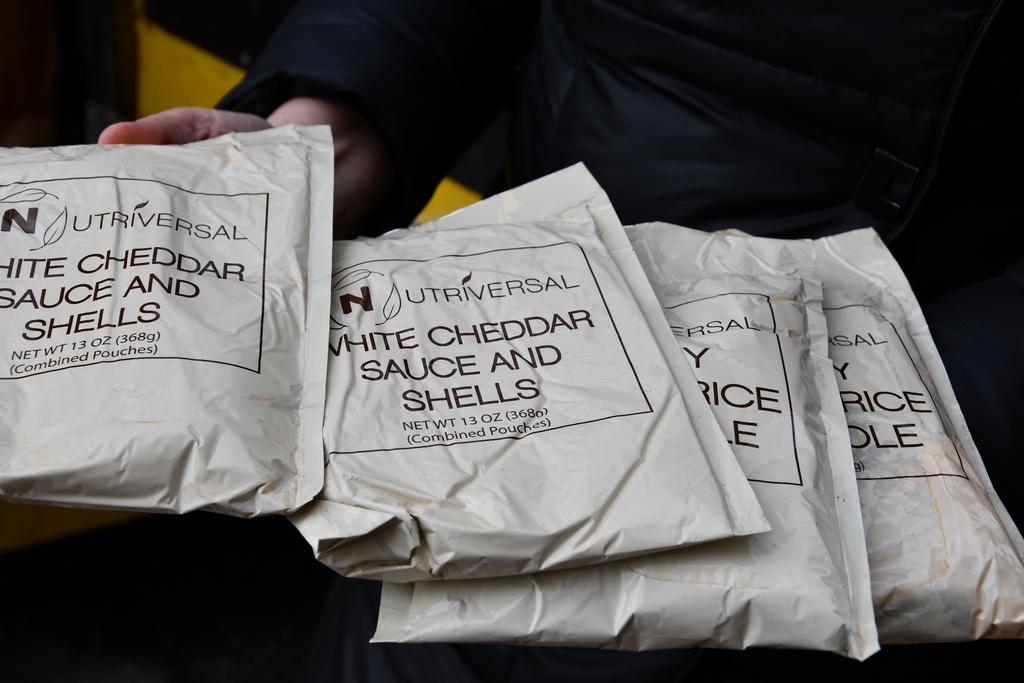 NUTRIVERSAL
HITE CHEDDAR
SAUCE AND
SHELLS
NET WT 13 OZ (368g)
(Combined Pouches)
NUTRIVERSAL
WHITE CHEDDAR
SAUCE AND
SHELLS
NET WT 13 OZ (368g)
(Combined Pouches)
ERSAL
Y
RICE
LE
RSAL
Y
RICE
OLE
g)